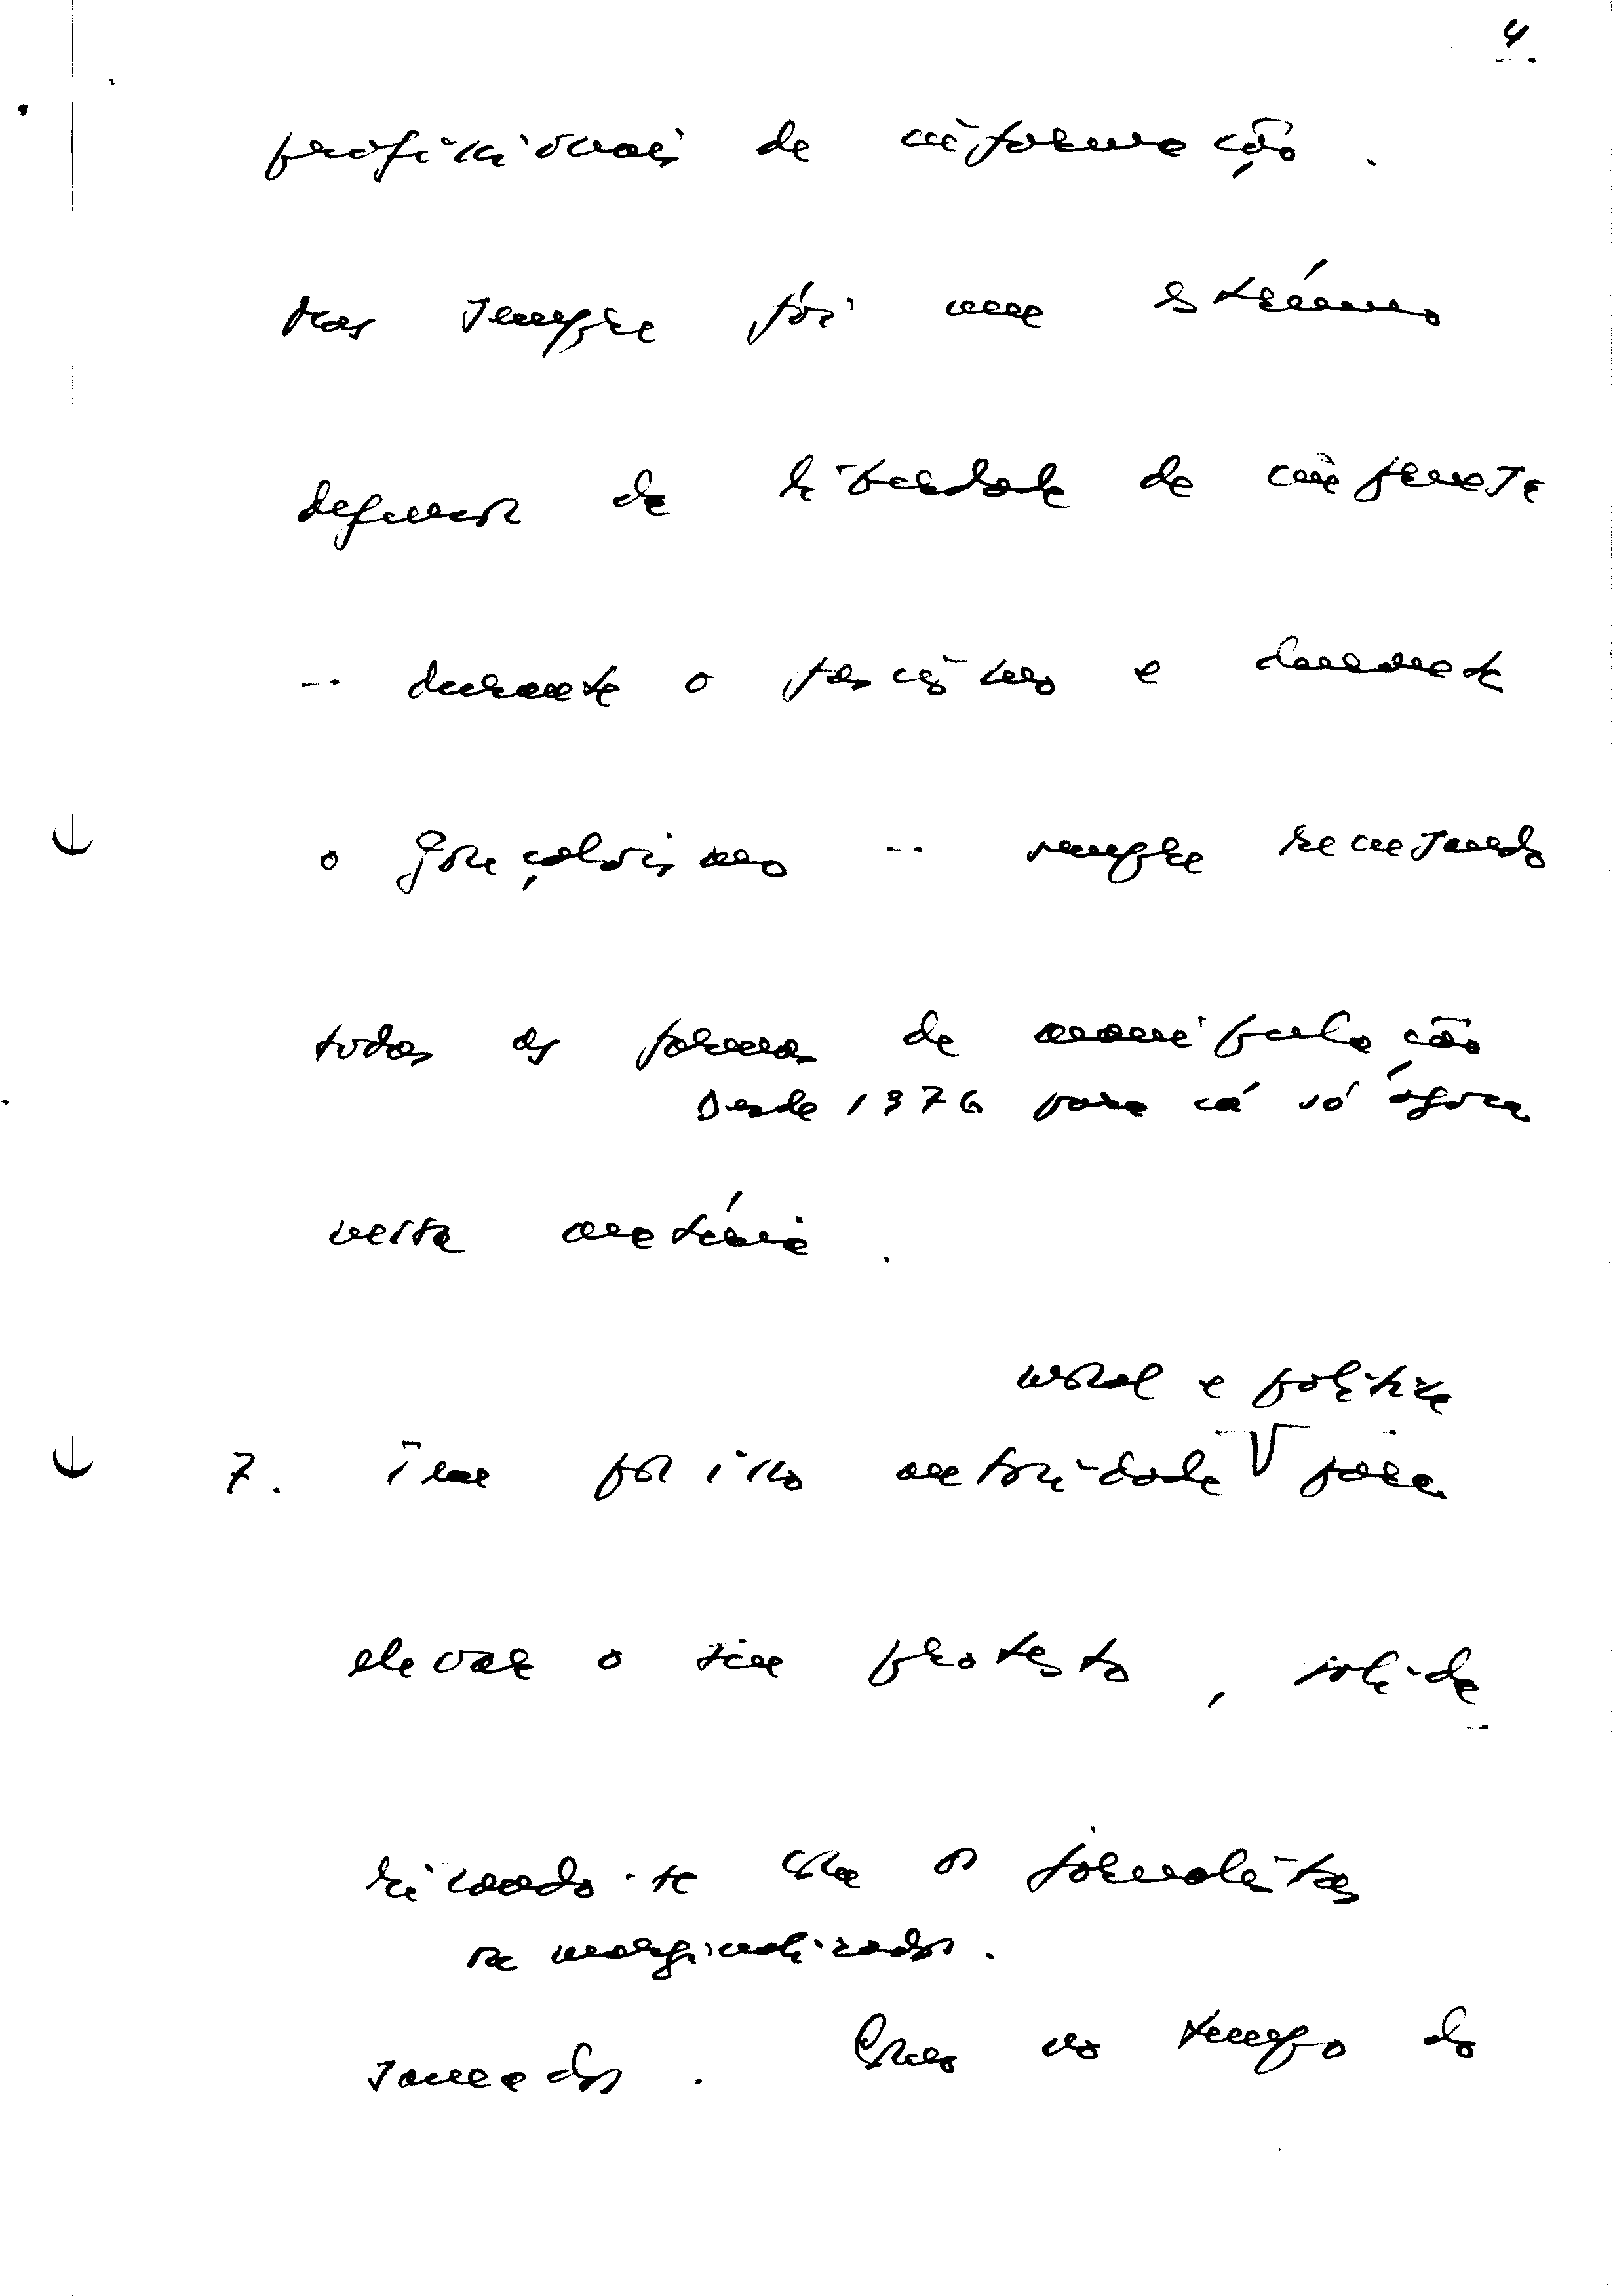 4.
profissionais de informação.
Mas sempre foi um estrénuo
defensor da liberdade de imprensa
-- durante o fascismo e durante
o gonçalvismo -- sempre recusando
todas as formas de manipulação
Desde 1976 para cá só agora
nesta matéria.
moral e política
7. Tem por isso autoridade V para
elevar o seu protesto, solida
rizando-se com os jornalistas
os marginalizados.
saneados. Como no tempo do